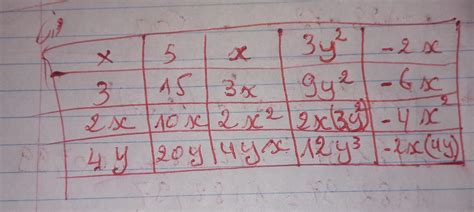 x 5 x 3y² -2x
3 15 3x 9y² -6x
2x 10x 2x² 2x(3y²) -4x²
4y 20y 4yx 12y³ -2x(4y)